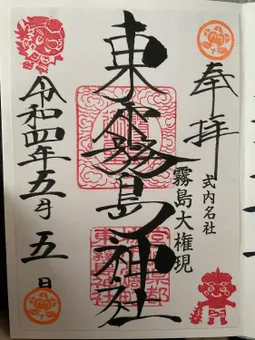 奉拝
式内名社
霧島大権現
東霧島神社
令和四年五月五日